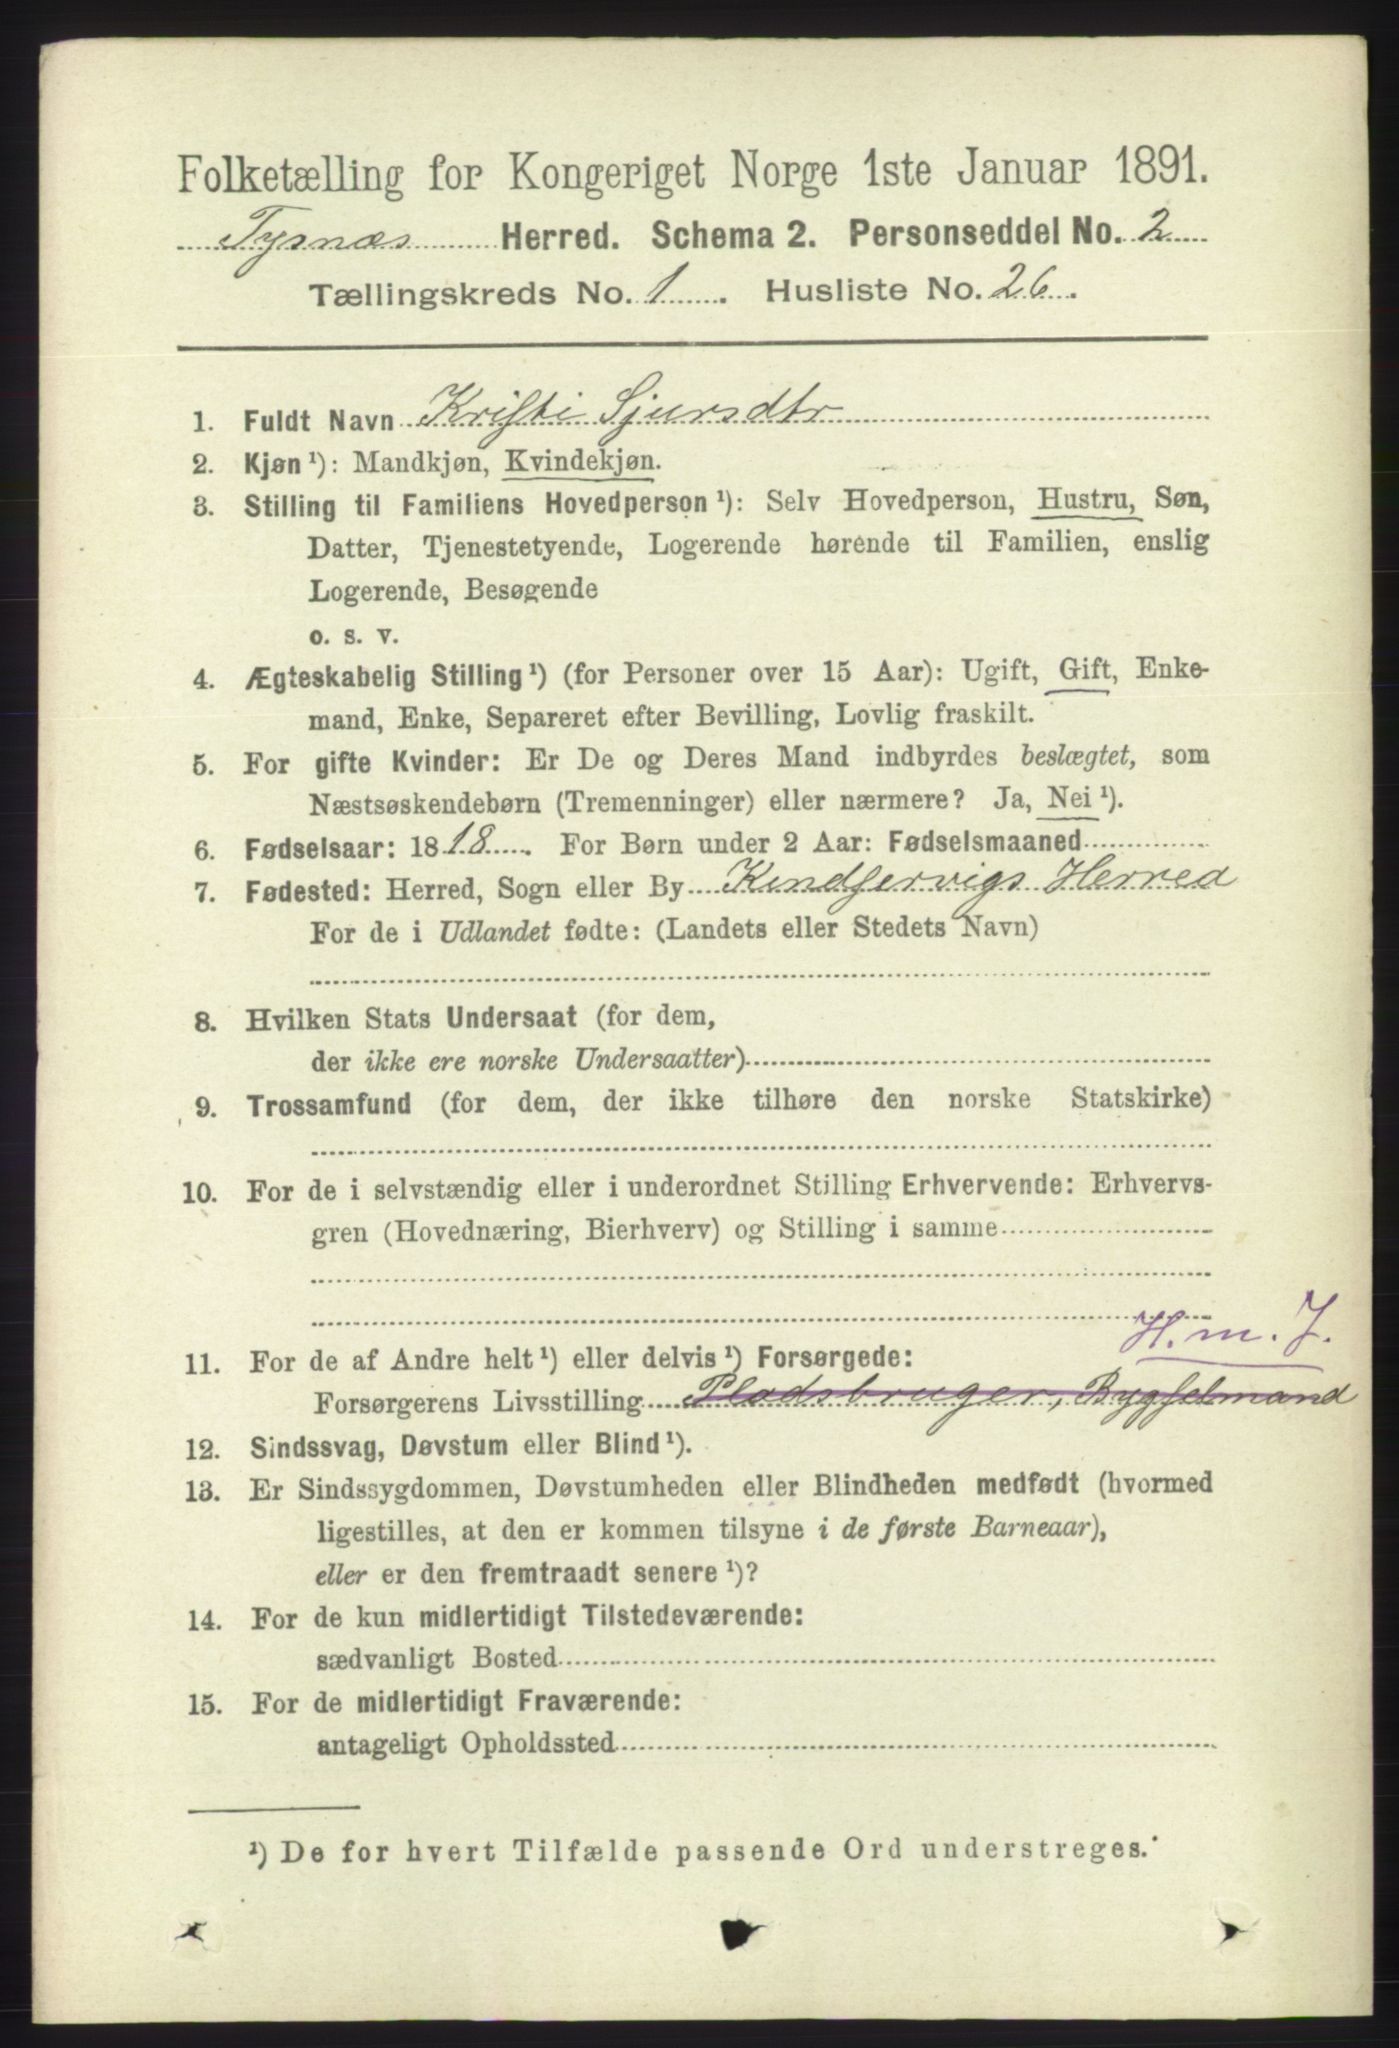 Folketælling for Kongeriget Norge 1ste Januar 1891.
Tysnæs Herred. Schema 2. Personseddel No. 2
Tællingskreds No. 1. Husliste No. 26.
1. Fuldt Navn Kristi Sjursdtr
2. Kjøn ¹): Mandkjøn, Kvindekjøn.
3. Stilling til Familiens Hovedperson ¹): Selv Hovedperson, Hustru, Søn,
Datter, Tjenestetyende, Logerende hørende til Familien, enslig
Logerende, Besøgende
o. s. v.
4. Ægteskabelig Stilling ¹) (for Personer over 15 Aar): Ugift, Gift, Enke-
mand, Enke, Separeret efter Bevilling, Lovlig fraskilt.
5. For gifte Kvinder: Er De og Deres Mand indbyrdes beslægtet, som
Næstsøskendebørn (Tremenninger) eller nærmere? Ja, Nei ¹).
6. Fødselsaar: 1818. For Børn under 2 Aar: Fødselsmaaned
7. Fødested: Herred, Sogn eller By Kendservigs Herred
For de i Udlandet fødte: (Landets eller Stedets Navn)
8. Hvilken Stats Undersaat (for dem,
der ikke ere norske Undersaatter)
9. Trossamfund (for dem, der ikke tilhøre den norske Statskirke)
10. For de i selvstændig eller i underordnet Stilling Erhvervende: Erhvervs-
gren (Hovednæring, Bierhverv) og Stilling i samme
H. m. J.
11. For de af Andre helt ¹) eller delvis ¹) Forsørgede:
Forsørgerens Livsstilling Pladsbruger, Bygselmand
12. Sindssvag, Døvstum eller Blind ¹).
13. Er Sindssygdommen, Døvstumheden eller Blindheden medfødt (hvormed
ligestilles, at den er kommen tilsyne i de første Barneaar),
eller er den fremtraadt senere ¹)?
14. For de kun midlertidigt Tilstedeværende:
sædvanligt Bosted
15. For de midlertidigt Fraværende:
antageligt Opholdssted
¹) De for hvert Tilfælde passende Ord understreges.